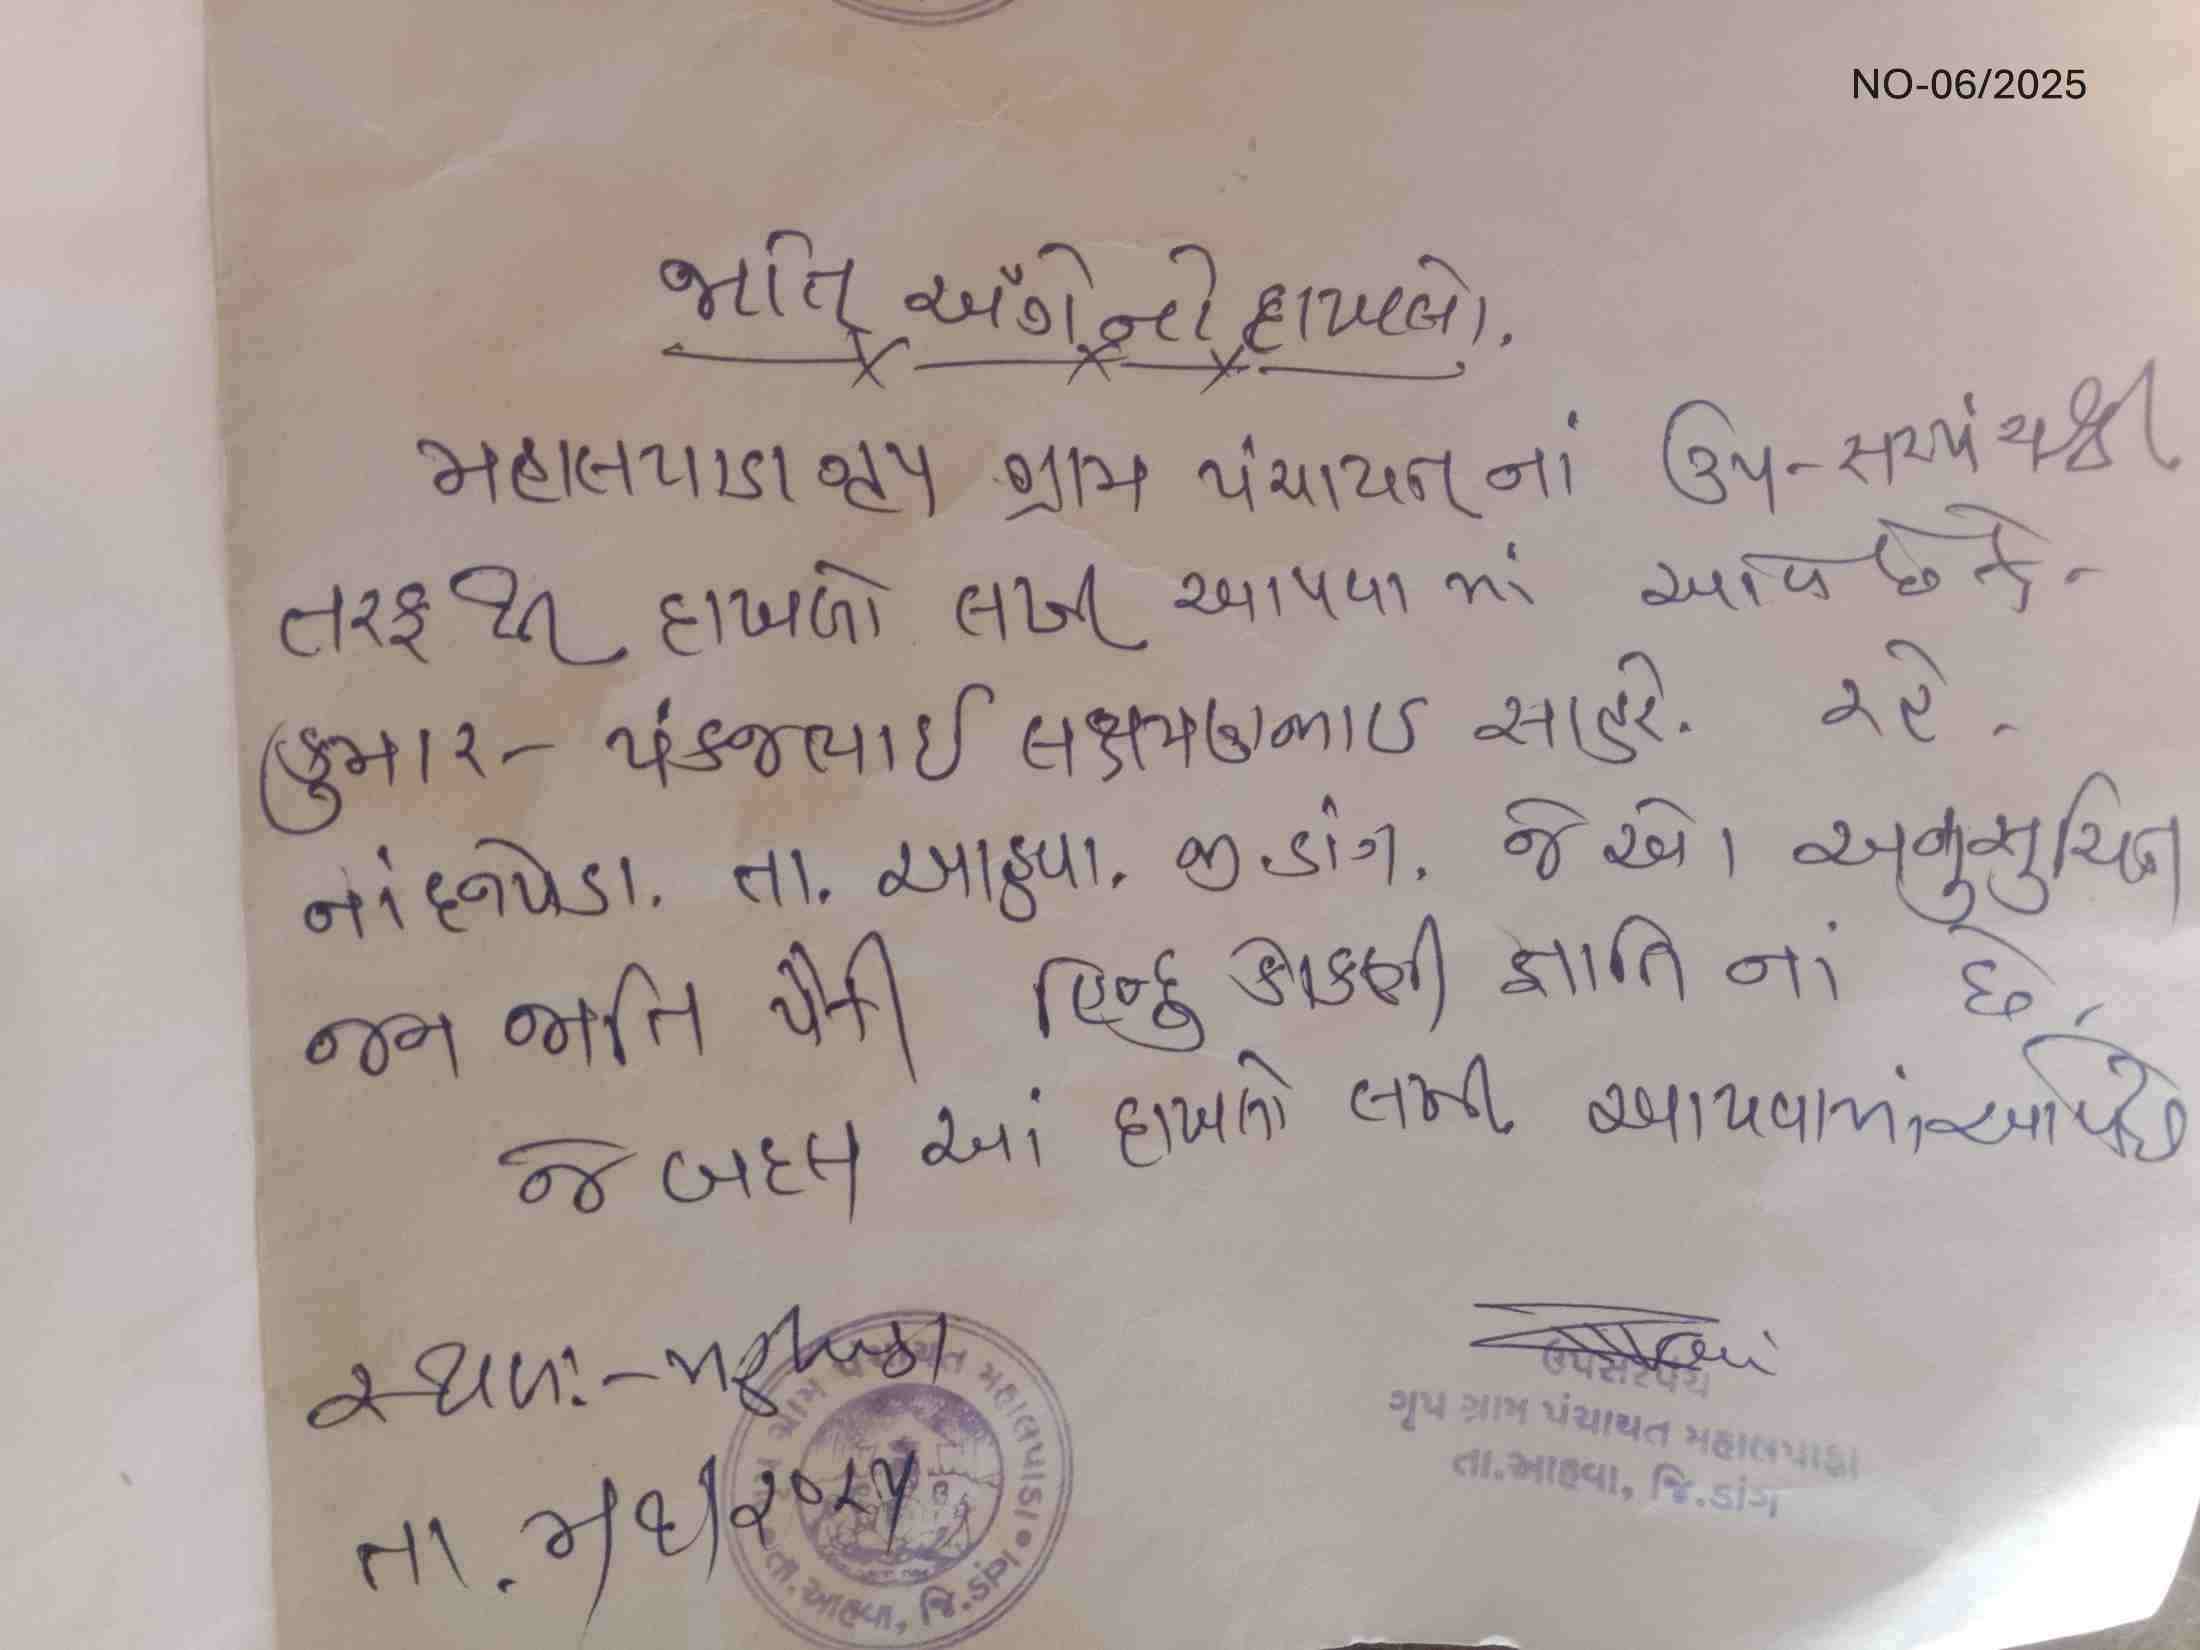 NO-06/2025
જાતિ અંગેનો દાખલો.
મહાલપાડા ગૃપ ગ્રામ પંચાયતનાં ઉપ-સરપંચશ્રી
તરફથી દાખલો લખી આપવામાં આવે છે કે-
કુમાર- પંકજભાઈ લક્ષ્મણભાઈ સાહરે. રહે.
નાંદનપેડા. તા. આહવા. જી ડાંગ. જે ઓ અનુસુચિત
જન જાતિ પૈકી હિન્દુ કોકણી જ્ઞાતિ નાં છે.
જે બદલ આ દાખલો લખી આપવામાં આવે છે
સ્થળ:-
તા. /2025
ઉપસરપંચ
ગૃપ ગ્રામ પંચાયત મહાલપાડા
તા.આહવા, જિ.ડાંગ
ગૃપ ગ્રામ પંચાયત મહાલપાડા
તા.આહવા, જિ.ડાંગ